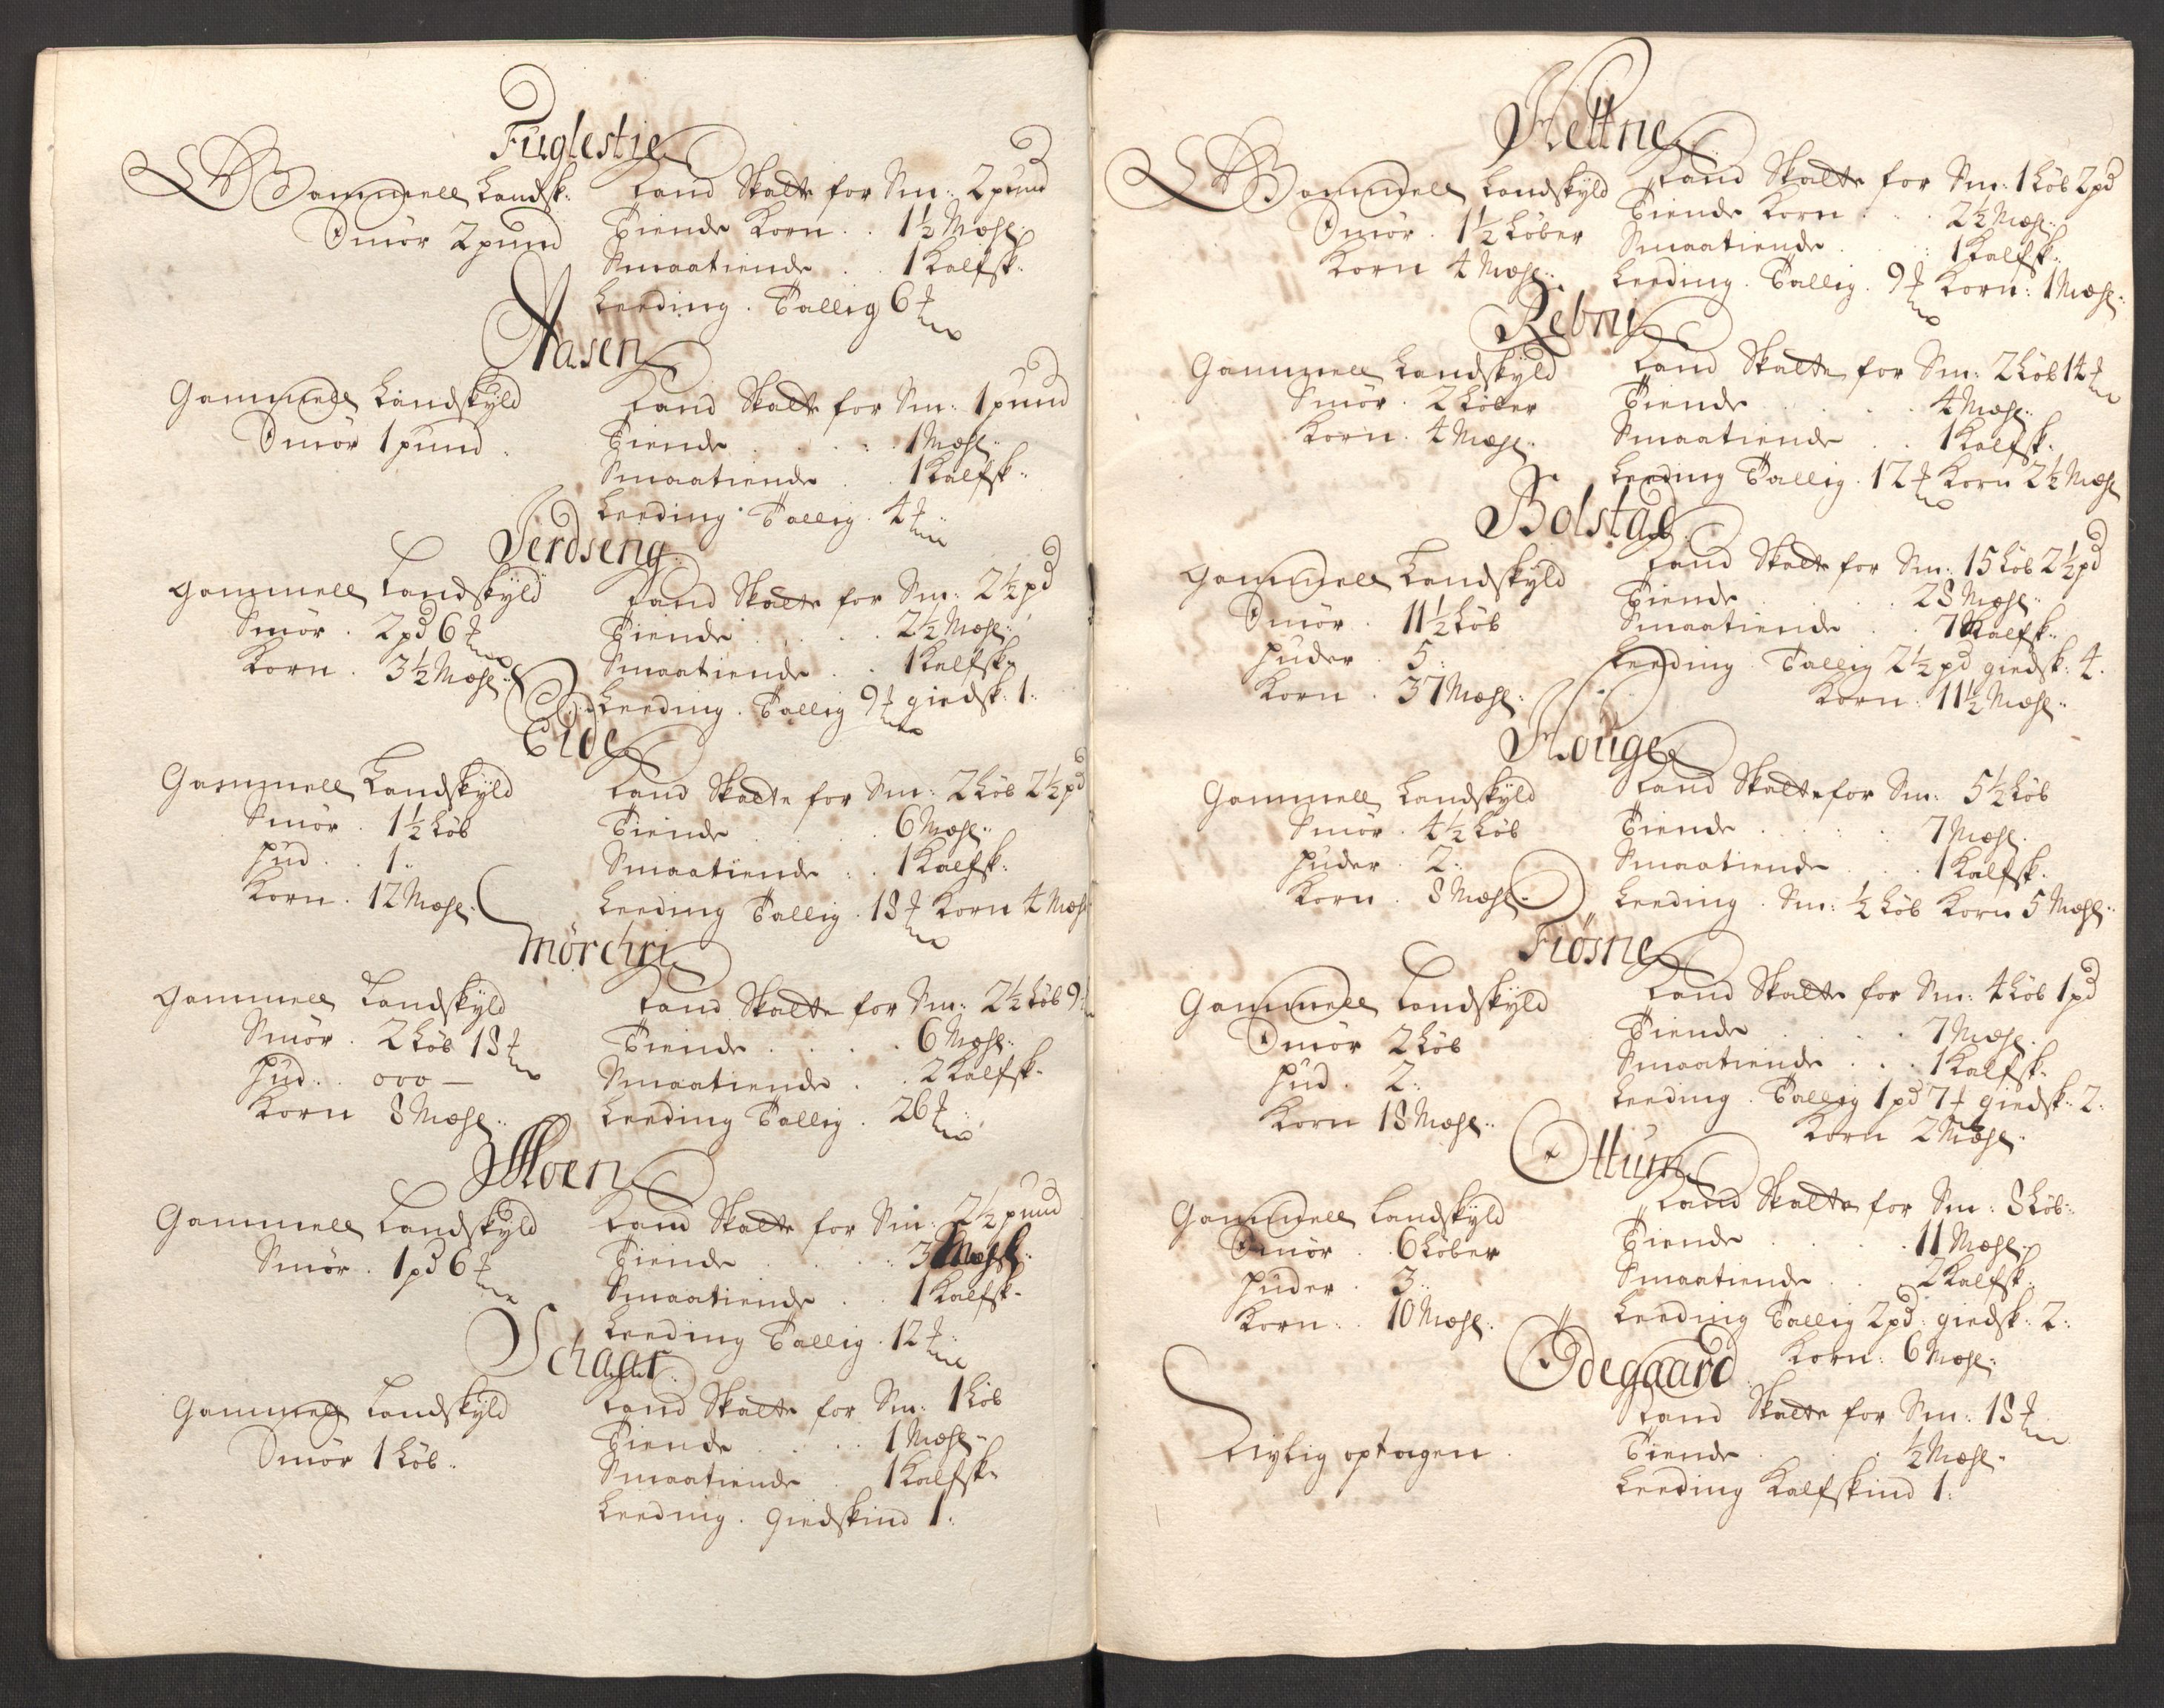 Fuglestie
Gammell Landsk:
Smör 2 pund
Land Skatte for Sm: 2 pund
Tiende Korn . . 1½ Mæhl:
Smaatiende . . 1 Kalfsk:
Leeding . Tallig 6 ℔
Aasen
Gammell Landskÿld
Smör 1 pund .
Land Skatte for Sm: 1 pund
Tiende . . . . 1 Mæhl:
Smaatiende . . 1 Kalfsk:
Leeding . Tallig . 4 ℔
Jerdseng
Gammell Landskÿld
Smör . 2 pd 6 ℔
Korn . 3½ Mæhl:
Land Skatte for Sm: 2½ pd
Tiende . . . . 2½ Mæhl:
Smaatiende . . 1 Kalfsk:
Leeding . Tallig 9 ℔ giedsk: 1:
Eide
Gammell Landskÿld
Smör . 1½ Löb
Hud . . 1:
Korn . 12 Mæhl:
Land Skatte for Sm: 2 Löb 2½ pd
Tiende . . . . 6 Mæhl:
Smaatiende . . 1 Kalfsk:
Leeding Tallig . 18 ℔ Korn 4 Mæhl
Mörchri
Gammell Landskÿld
Smör . 2 Löb 18 ℔
Hud . . 000 —
Korn 8 Mæhl:
Land Skatte for Sm: 2½ Löb 9 ℔
Tiende . . . . 6 Mæhl:
Smaatiende . . 2 Kalfsk:
Leeding Tallig . 26 ℔
Moen
Gammell Landskÿld
Smör . 1 pd 6 ℔
Land Skatte for Sm: 2½ pund
Tiende . . . . 3 Mæhl:
Smaatiende . . 1 Kalfsk:
Leeding Tallig . 12 ℔
Schaar
Gammell Landskÿld
Smör 1 Löb:
Land Skatte for Sm: 1 Löb
Tiende . . . . 1 Mæhl:
Smaatiende . 1 Kalfsk:
Leeding . Giedskind 1:
Hettne
Gammell Landskÿld
Smör . 1½ Löber
Korn 4 Mæhl:
Land Skatte for Sm: 1 Löb 2 pd
Tiende Korn . . 2½ Mæhl:
Smaatiende . . 1 Kalfsk:
Leeding . Tallig . 9 ℔ Korn: 1 Mæhl:
Rebni
Gammell Landskÿld
Smör . 2 Löber
Korn . 4 Mæhl:
Land Skatte for Sm: 2 Löb 14 ℔
Tiende . . . . 4 Mæhl:
Smaatiende . . 1 Kalfsk:
Leeding Tallig . 12 ℔ Korn 2½ Mæhl
Bolstad
Gammell Landskÿld
Smör . 11½ Löb
Huder . 5:
Korn . 37 Mæhl:
Land Skatte for Sm: 15 Löb 2½ pd
Tiende . . . . 28 Mæhl:
Smaatiende . . 7 Kalfsk:
Leeding . Tallig 2½ pd giedsk: 4.
Korn: 11½ Mæhl:
Houge
Gammell Landskÿld
Smör . 4½ Löb
Huder . 2:
Korn . 8 Mæhl:
Land Skatte for Sm: 5½ Löb
Tiende . . . . 7 Mæhl:
Smaatiende . . 1 Kalfsk:
Leeding . Sm: ½ Löb Korn 5 Mæhl:
Fiösne
Gammell Landskÿld
Smör 2 Löb
Hud . 2:
Korn 18 Mæhl:
Land Skatte for Sm: 4 Löb 1 pd
Tiende . . . . 7 Mæhl:
Smaatiende . . . 1 Kalfsk:
Leeding . Tallig 1 pd 7 ℔ giedsk: 2:
Korn 2 Mæhl:
Ottum
Gammell Landskÿld
Smör . . 6 Löber
Huder . 3:
Korn: . 10 Mæhl:
Land Skatte for Sm: 8 Löb:
Tiende . . . . 11 Mæhl:
Smaatiende . . 2 Kalfsk:
Leeding Tallig 2 pd: giedsk: 2:
Korn: 6 Mæhl:
Ödegaard
Nÿlig optagen .
Land Skatte for Sm: 18 ℔
Tiende . . . ½ Mæhl:
Leeding Kalfskind 1: